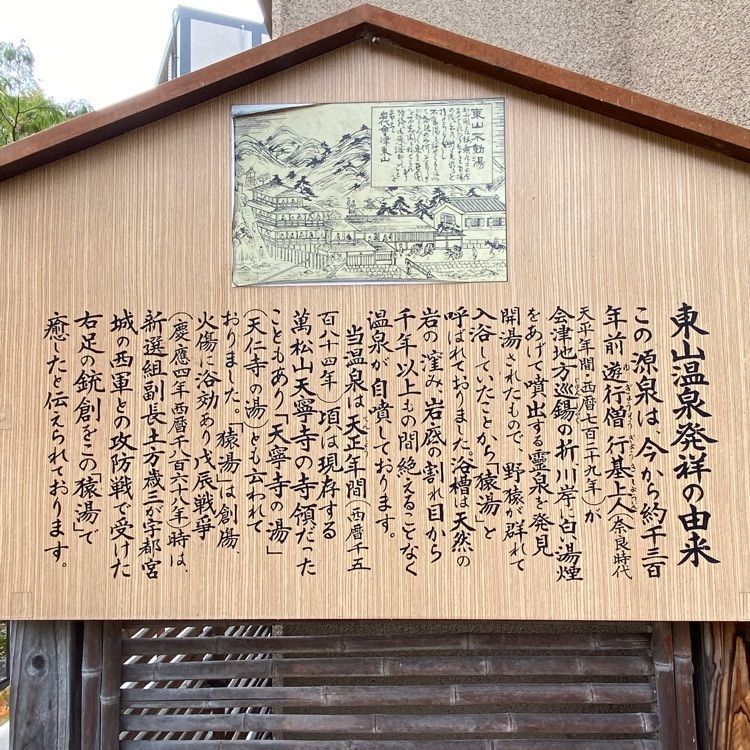 東山温泉発祥の由来
この源泉は、今から約千三百
年前遊行僧行基上人(奈良時代
天平年間・西暦七百二十九年)が
会津地方巡錫の折川岸に白い湯煙
をあげて噴出する霊泉を発見
開湯されたもので、野猿が群れて
入浴していたことから「猿湯」と
呼ばれておりました。浴槽は天然の
岩の窪み、岩底の割れ目から
千年以上もの間絶えることなく
温泉が自噴しております。
当温泉は天正年間(西暦千五
百八十四年)頃は現存する
萬松山天寧寺の寺領だった
こともあり「天寧寺の湯」
(天仁寺の湯)とも云われて
おりました。「猿湯」は創傷、
火傷に浴効あり戊辰戦争
(慶應四年・西暦千八百六十八年)時は、
新選組副長土方歳三が宇都宮
城の西軍との攻防戦で受けた
右足の銃創をこの「猿湯」で
癒したと伝えられております。
東山不動湯
岩代會津東山